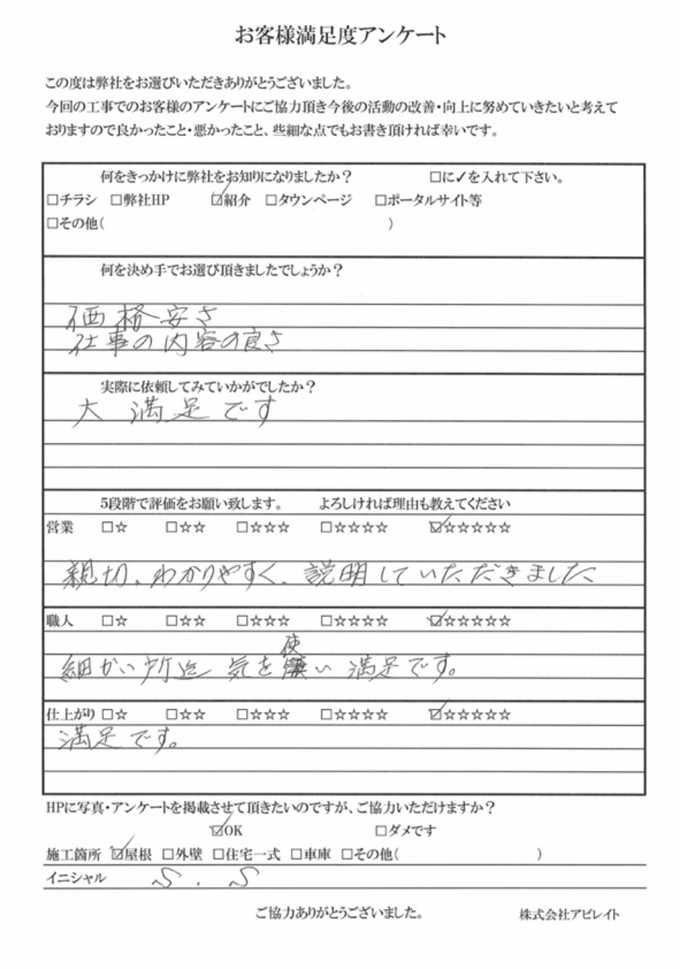 お客様満足度アンケート
この度は弊社をお選びいただきありがとうございました。
今回の工事でのお客様のアンケートにご協力頂き今後の活動の改善・向上に努めていきたいと考えて
おりますので良かったこと・悪かったこと、些細な点でもお書き頂ければ幸いです。
何をきっかけに弊社をお知りになりましたか？ □に✓を入れて下さい。
□チラシ □弊社HP ☑紹介 □タウンページ □ポータルサイト等
□その他( )
何を決め手でお選び頂きましたでしょうか？
価格安さ
仕事の内容の良さ
実際に依頼してみていかがでしたか？
大満足です
5段階で評価をお願い致します。 よろしければ理由も教えてください
営業 □☆ □☆☆ □☆☆☆ □☆☆☆☆ ☑☆☆☆☆☆
親切、わかりやすく、説明していただきました
職人 □☆ □☆☆ □☆☆☆ □☆☆☆☆ ☑☆☆☆☆☆
細かい所迄 気を使い 満足です。
仕上がり □☆ □☆☆ □☆☆☆ □☆☆☆☆ ☑☆☆☆☆☆
満足です。
HPに写真・アンケートを掲載させて頂きたいのですが、ご協力いただけますか？
☑OK □ダメです
施工箇所 ☑屋根 □外壁 □住宅一式 □車庫 □その他( )
イニシャル S.S
ご協力ありがとうございました。 株式会社アビレイト